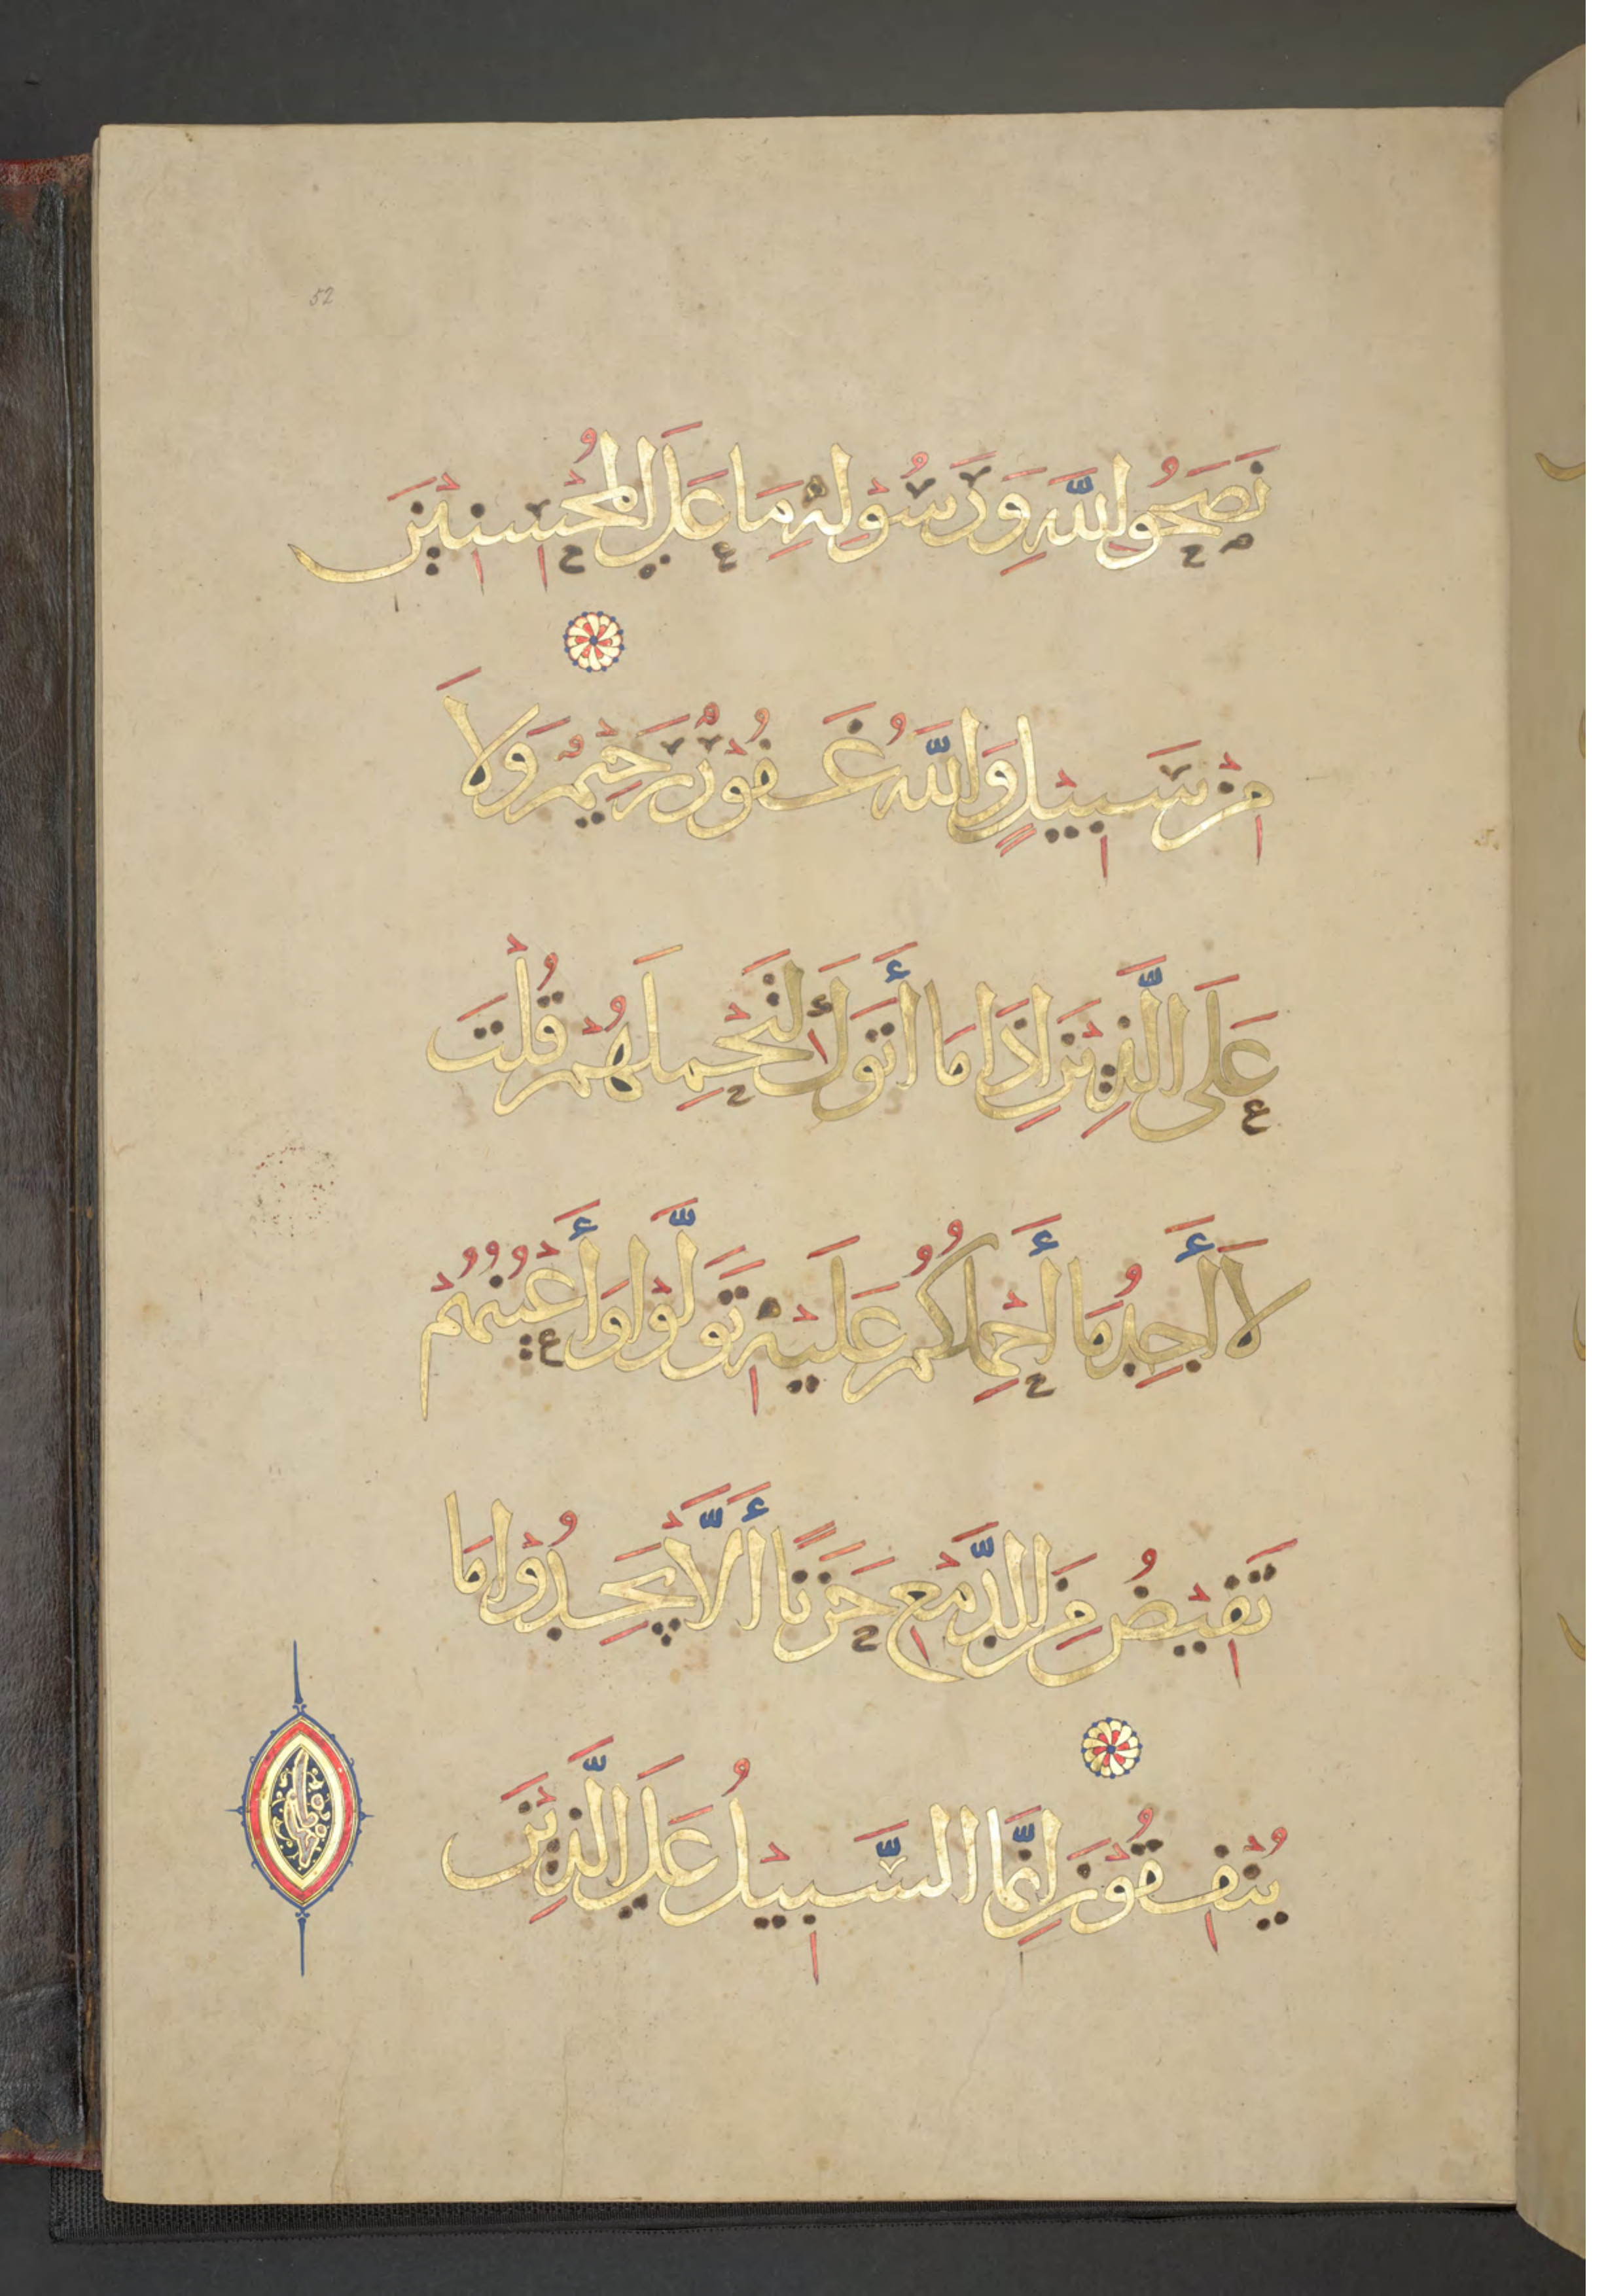 52
نَصَحُوا لِلَّهِ وَرَسُولِهِ مَا عَلَى الْمُحْسِنِينَ
مِنْ سَبِيلٍ وَاللَّهُ غَفُورٌ رَحِيمٌ وَلَا
عَلَى الَّذِينَ إِذَا مَا أَتَوْكَ لِتَحْمِلَهُمْ قُلْتَ
لَا أَجِدُ مَا أَحْمِلُكُمْ عَلَيْهِ تَوَلَّوْا وَأَعْيُنُهُمْ
تَفِيضُ مِنَ الدَّمْعِ حَزَنًا أَلَّا يَجِدُوا مَا
يُنْفِقُونَ إِنَّمَا السَّبِيلُ عَلَى الَّذِينَ